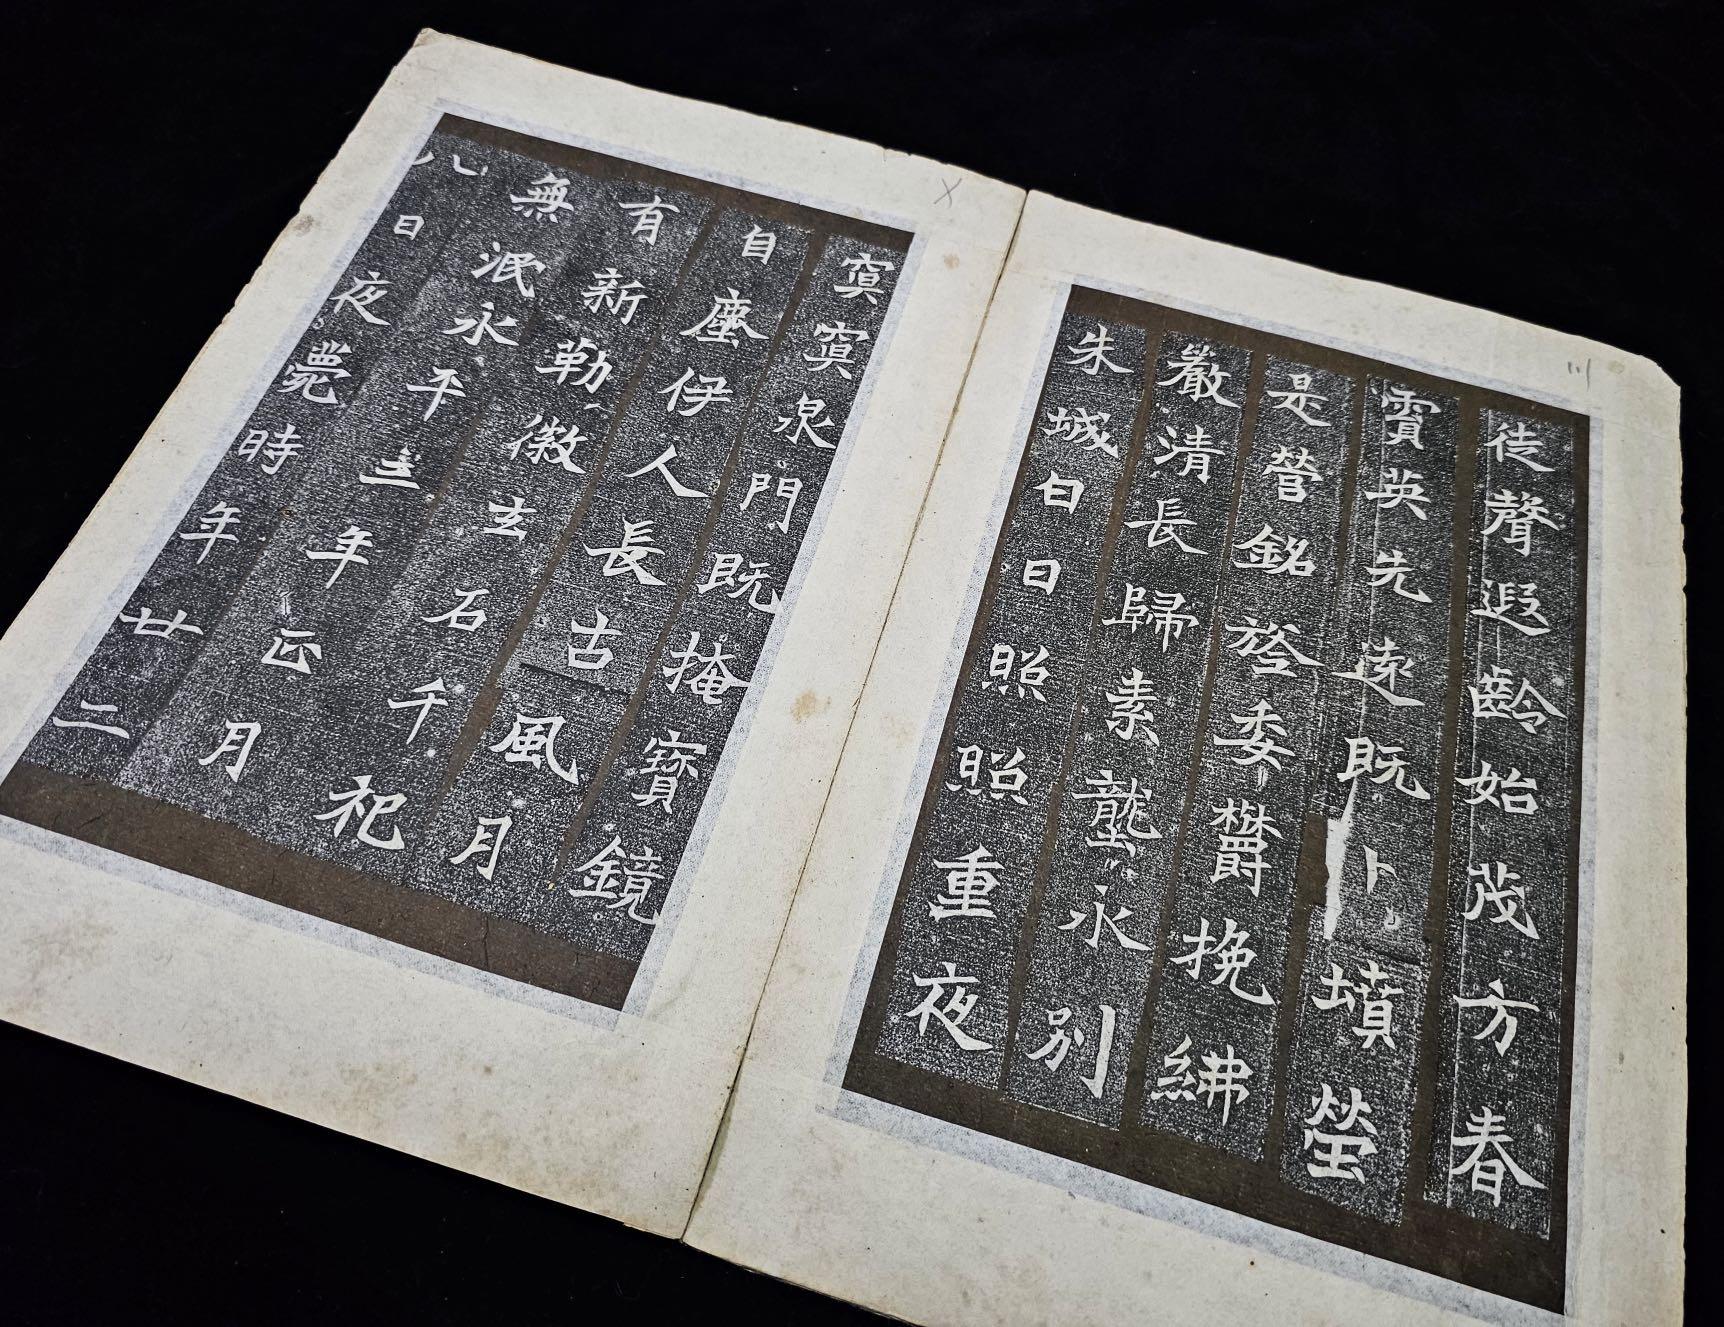 徒聲遐齡始茂方春
霣英先遠既卜墳塋
是營銘旍委欝挽紼
嚴清長歸素壟永別
朱城白日照照重夜
冥冥泉門既掩寶鏡
自塵伊人長古風月
有新勒徽玄石千祀
無泯永平三年正月
八日夜薨時年廿二